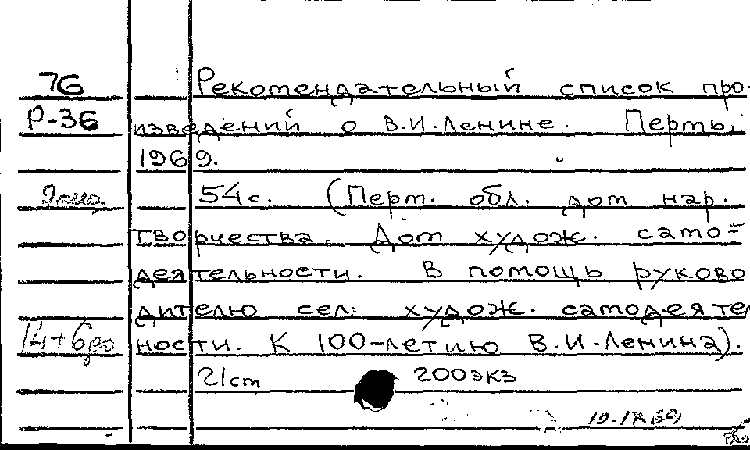 76 Рекомендательный список про-
Р-36 изведений о В.И.Ленине. Пермь,
1969.
54с. (Перм. обл. дом нар.
творчества. Дом худож. само=
деятельности. В помощь руково
дителю сел. худож. самодеяте
14+6 ности. К 100-летию В.И.Ленина).
21cm 200экз